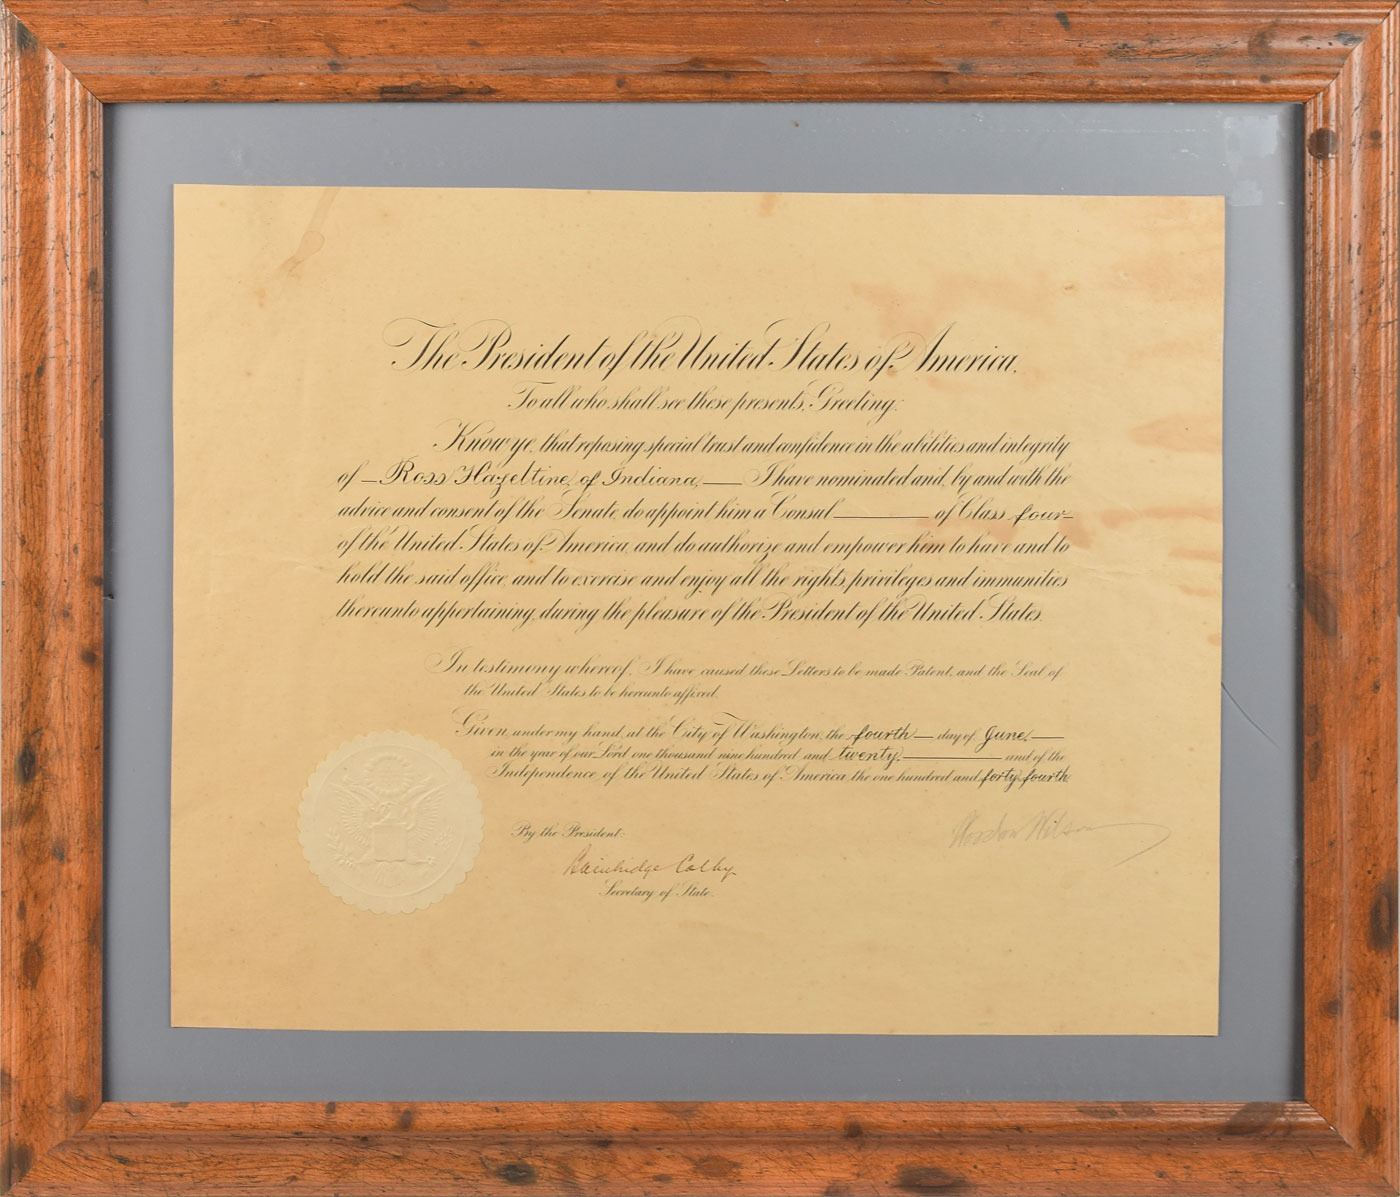 The President of the United States of America,
To all who shall see these presents, Greeting:
Know ye, that reposing special trust and confidence in the abilities and integrity
of — Ross Hazeltine, of Indiana, — I have nominated and, by and with the
advice and consent of the Senate, do appoint him a Consul — of Class four —
of the United States of America, and do authorize and empower him to have and to
hold the said office, and to exercise and enjoy all the rights, privileges and immunities
thereunto appertaining, during the pleasure of the President of the United States.
In testimony whereof, I have caused these Letters to be made Patent, and the Seal of
the United States to be hereunto affixed.
Given under my hand, at the City of Washington, the fourth — day of June, —
in the year of our Lord one thousand nine hundred and twenty, — and of the
Independence of the United States of America the one hundred and forty-fourth.
Woodrow Wilson
By the President:
Bainbridge Colby
Secretary of State.